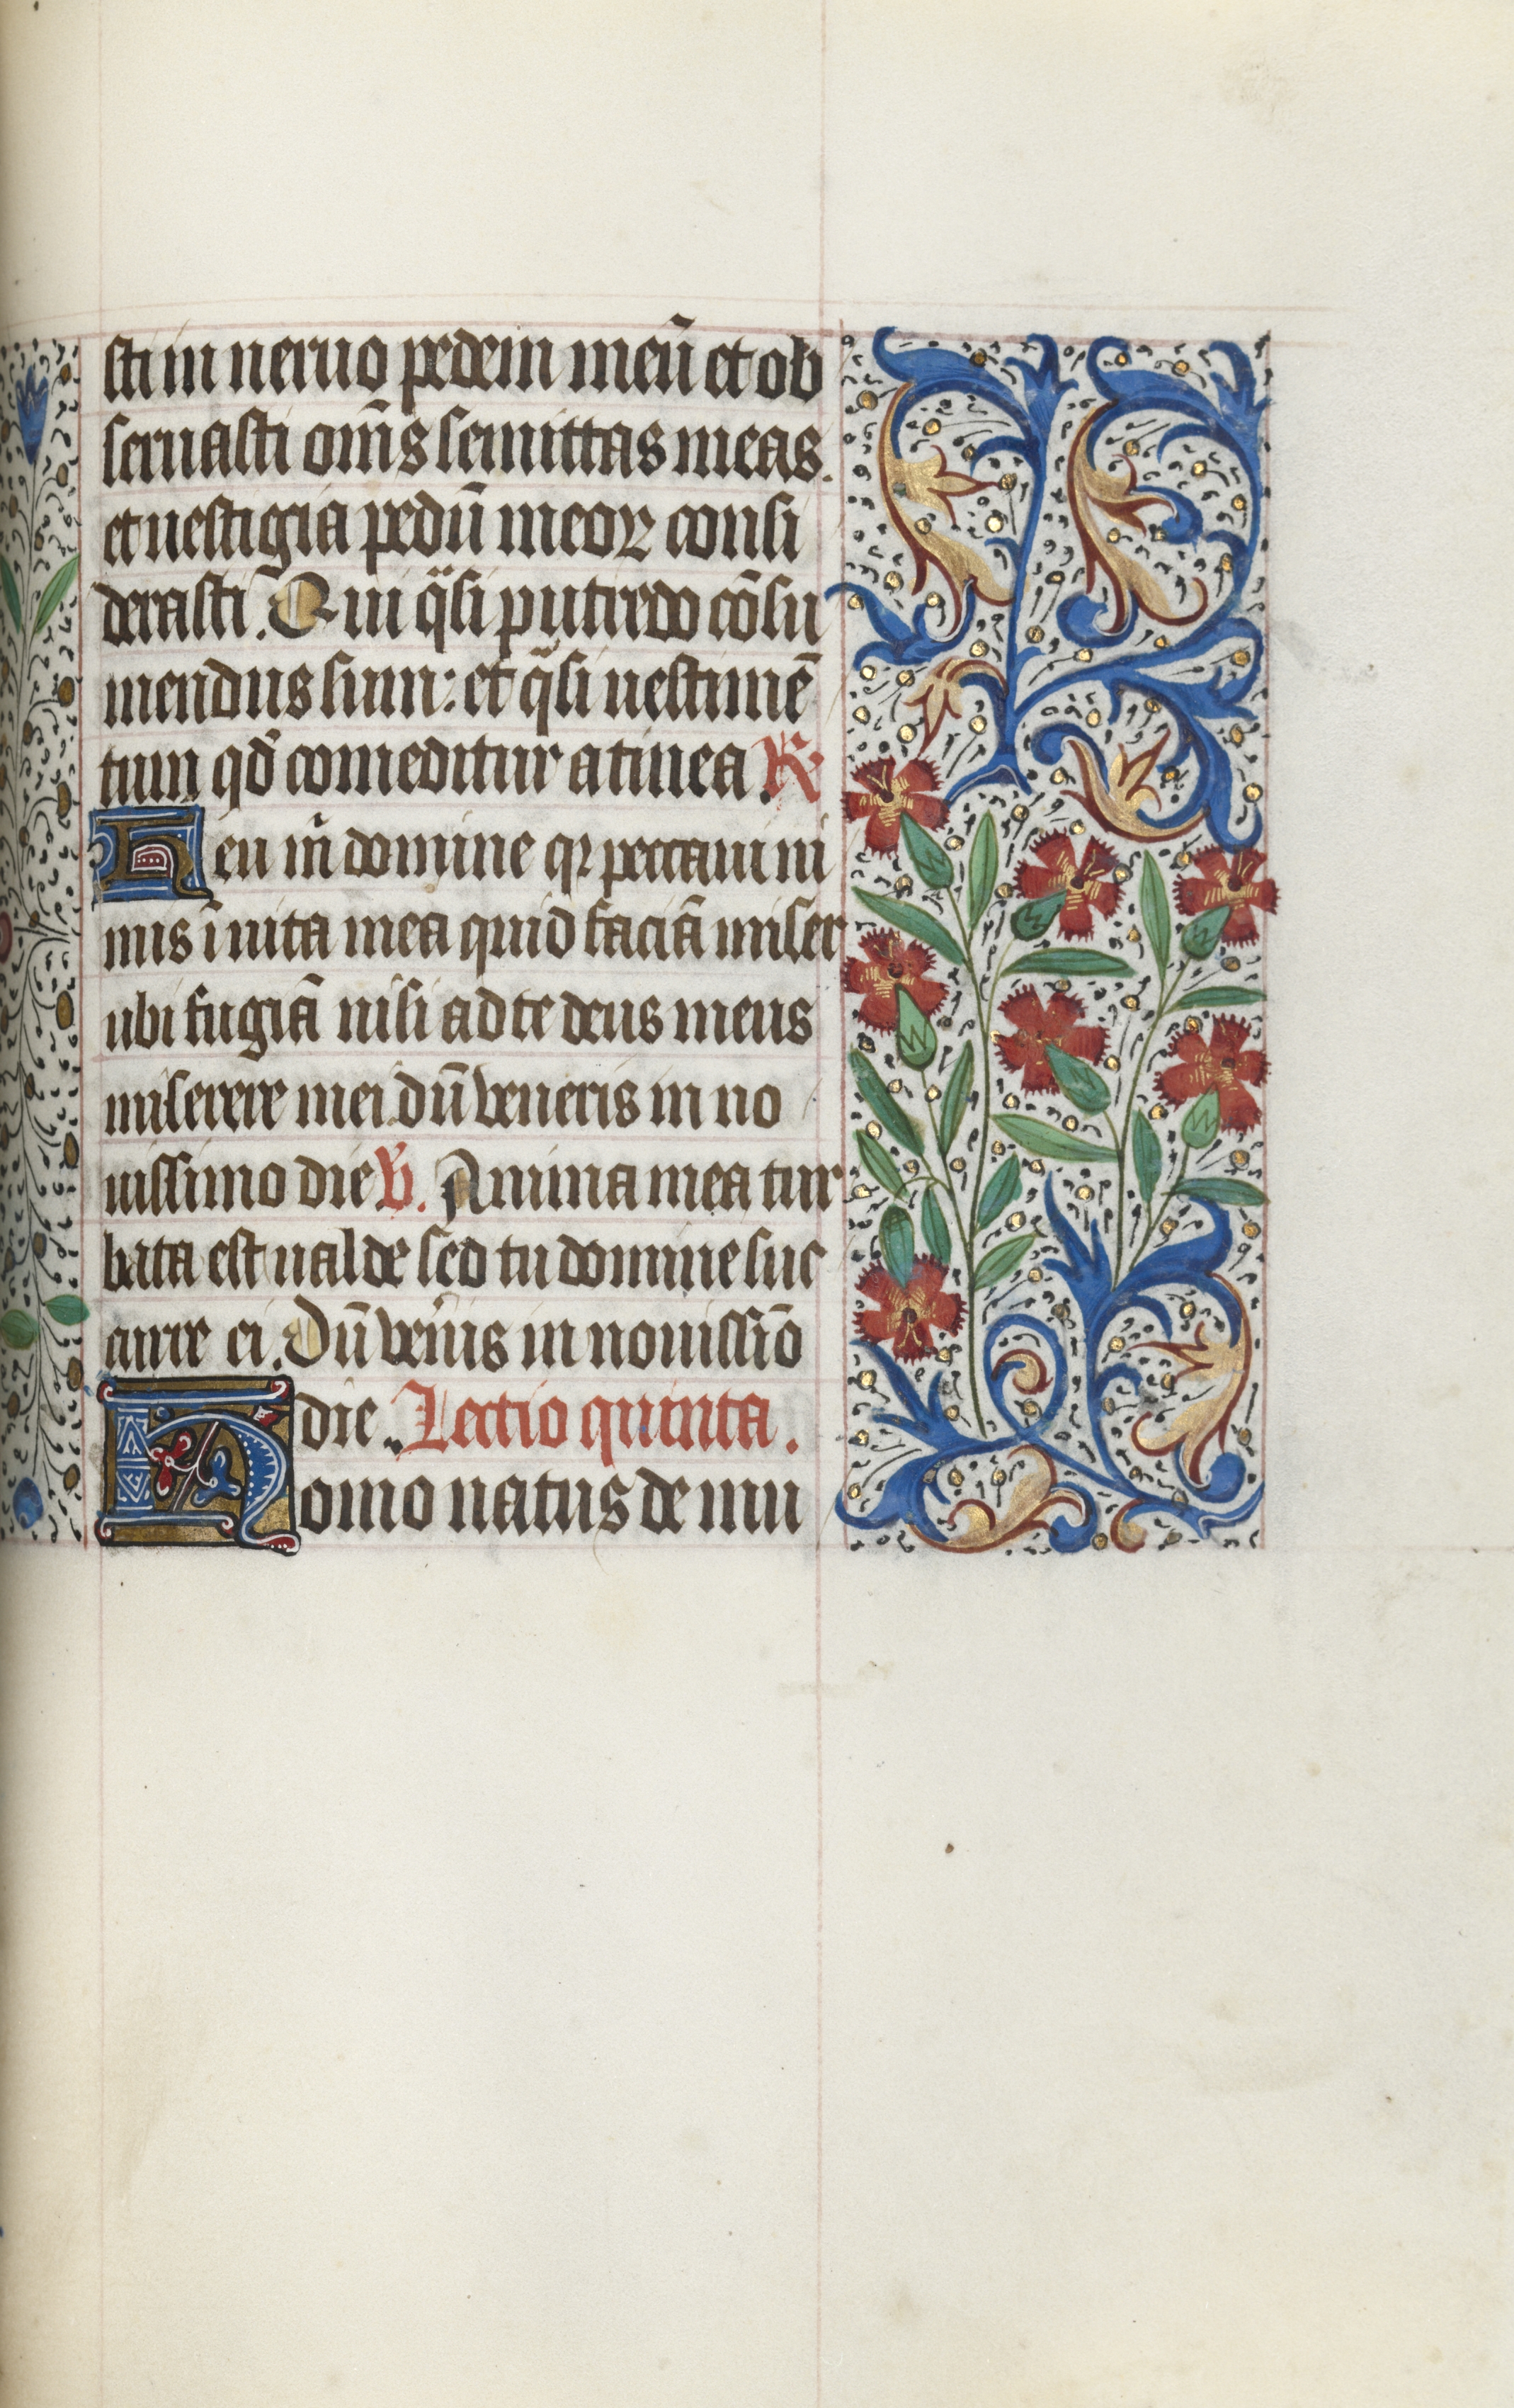 sti in neruo pedem meũ et ob
seruasti om̃s semittas meas.
et uestigia pedũ meoꝝ consi
derasti. Qui q̃si putredo cõsu
mendus sum: et q̃si uestimẽ
tum qd̃ comeditur a tinea. R.
Heu m̃ domine qꝛ peccaui ni
mis ĩ uita mea quid faciã miser
ubi fugiã nisi ad te deus meus
miserere mei dũ ueneris in no
uissimo die V. Anima mea tur
bata est ualde sed tu domine suc
curre ei. Dũ ueñis in nouissĩo
die. Lectio quinta.
Homo natus de mu